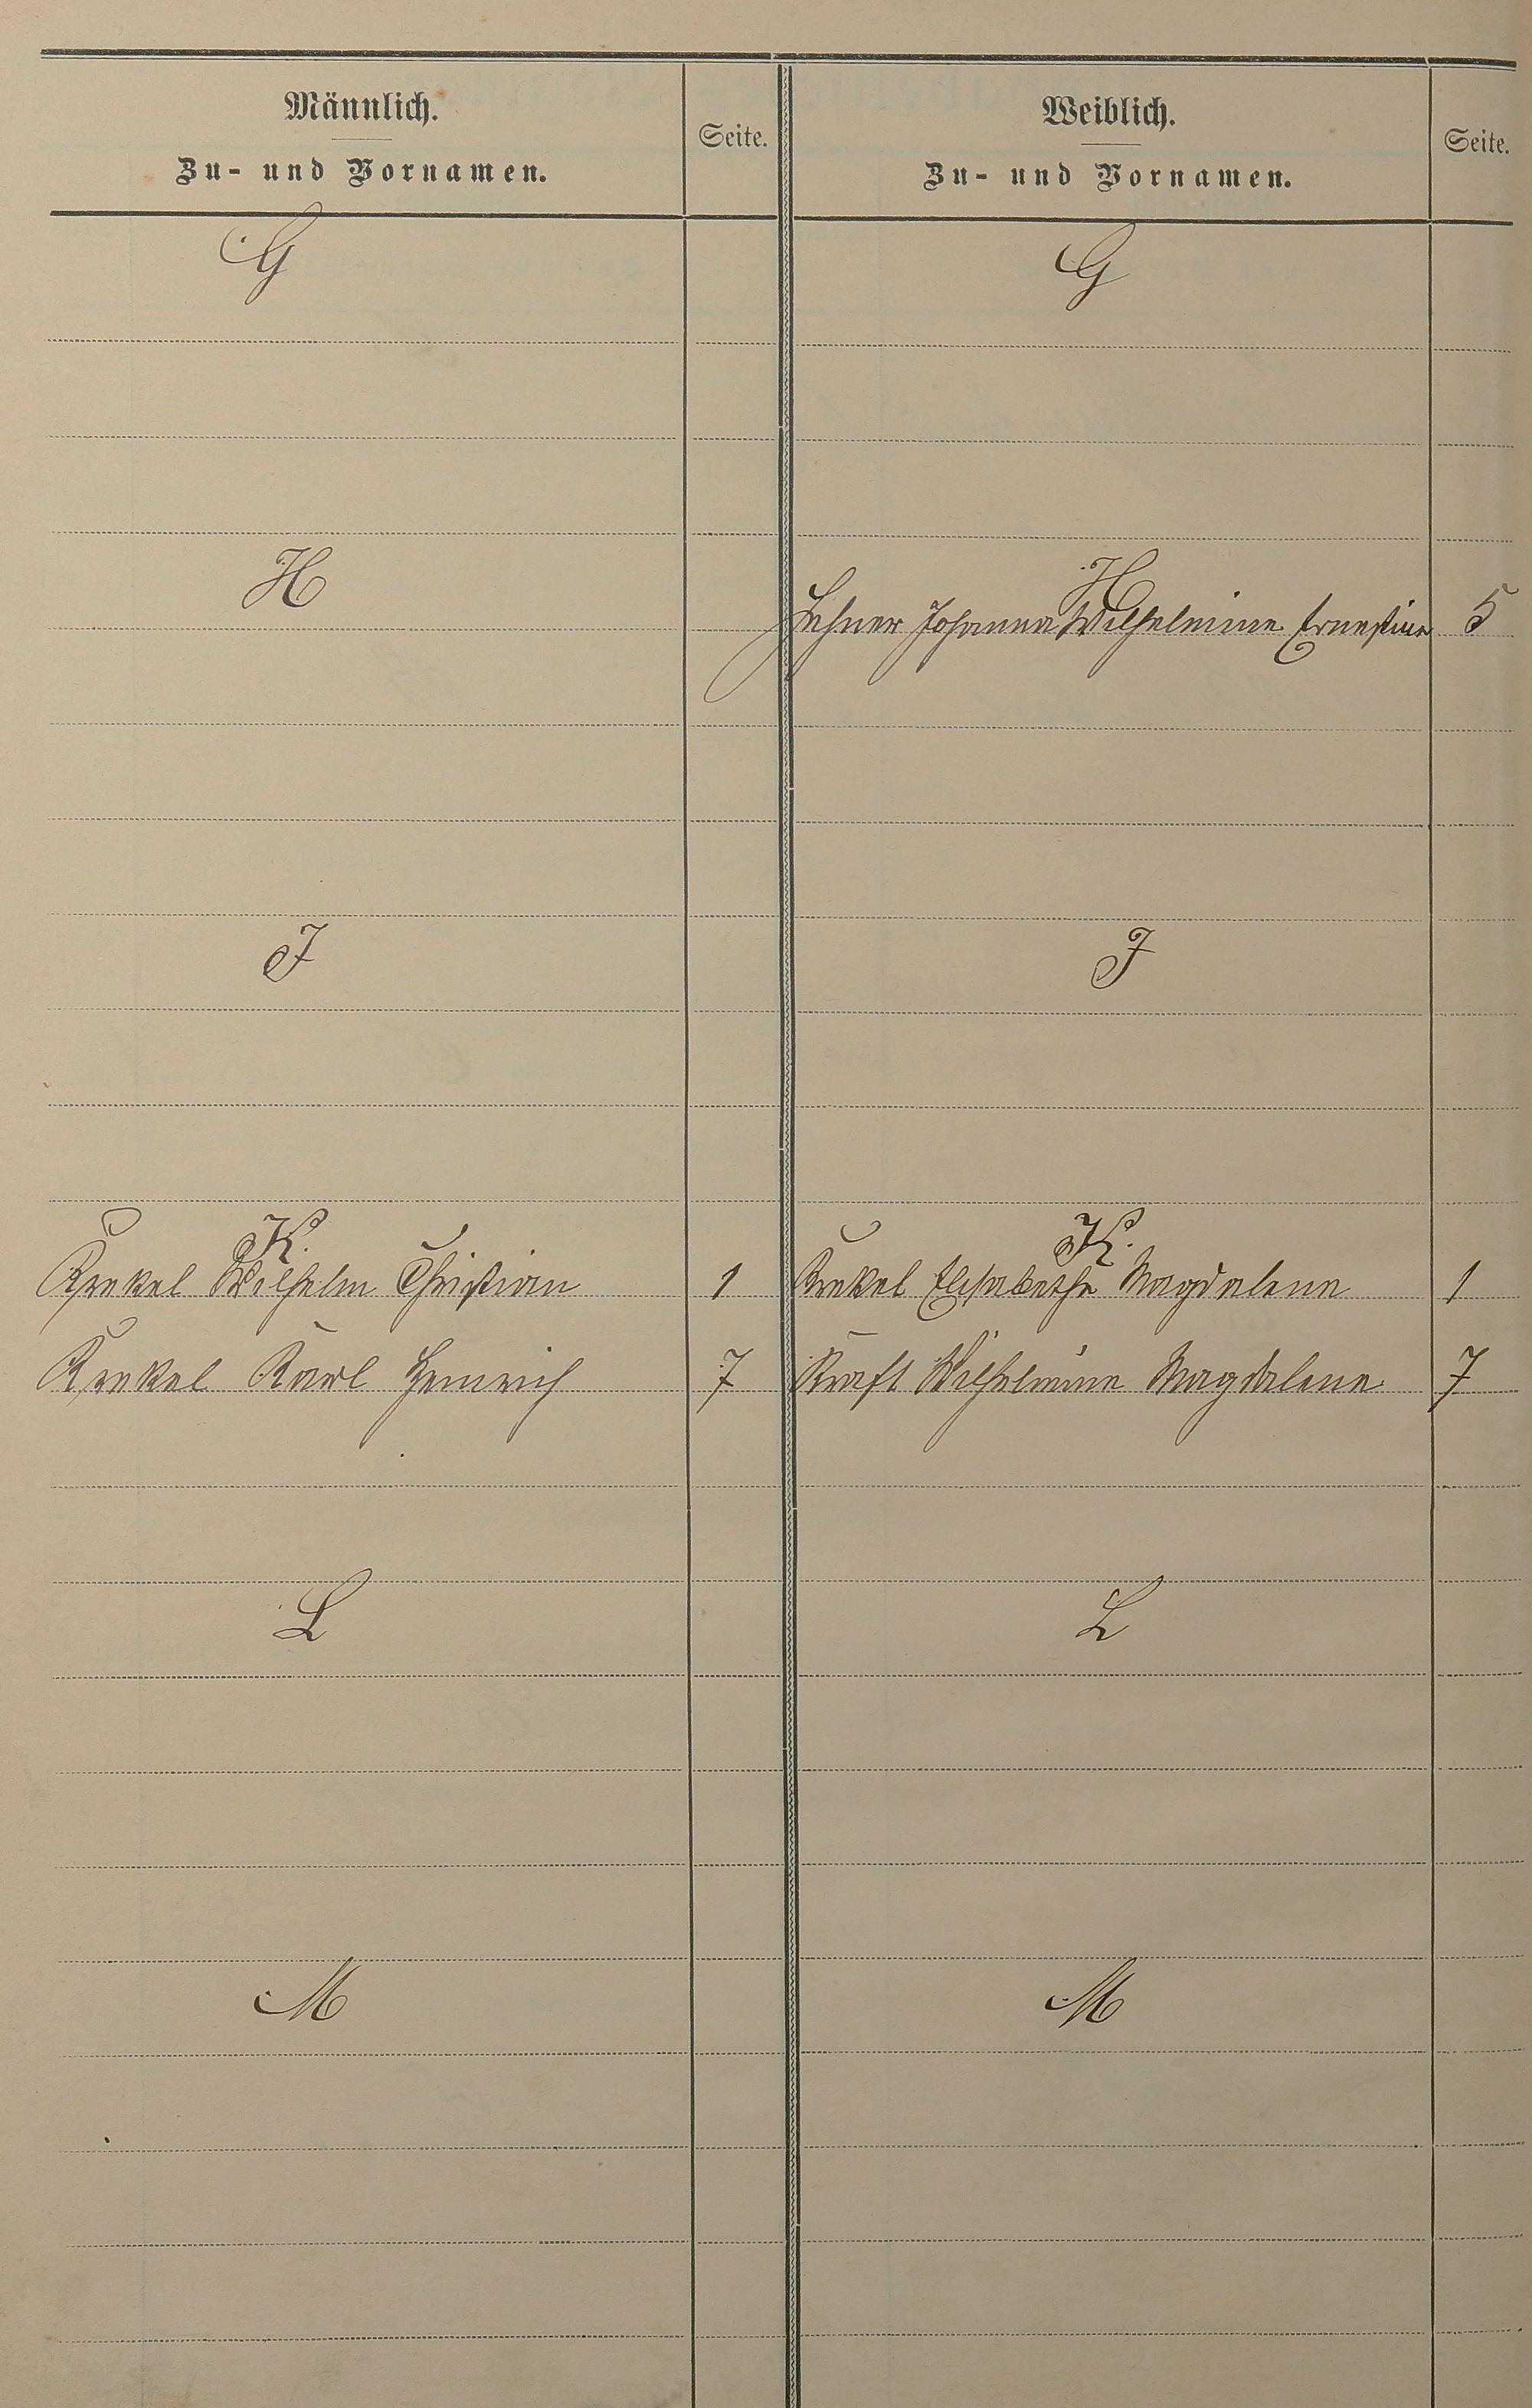 Männlich.
Zu- und Vornamen.
Seite.
Weiblich.
Zu- und Vornamen.
Seite.
G
G
H
H
Hehner Johanna Wilhelmine Ernestine 5
J
J
K.
K.
Krekel Wilhelm Christian 1
Krekel Elisabethe Magdalene 1
Krekel Karl Heinrich 7
Kraft Wilhelmine Magdalene 7
L
L
M
M